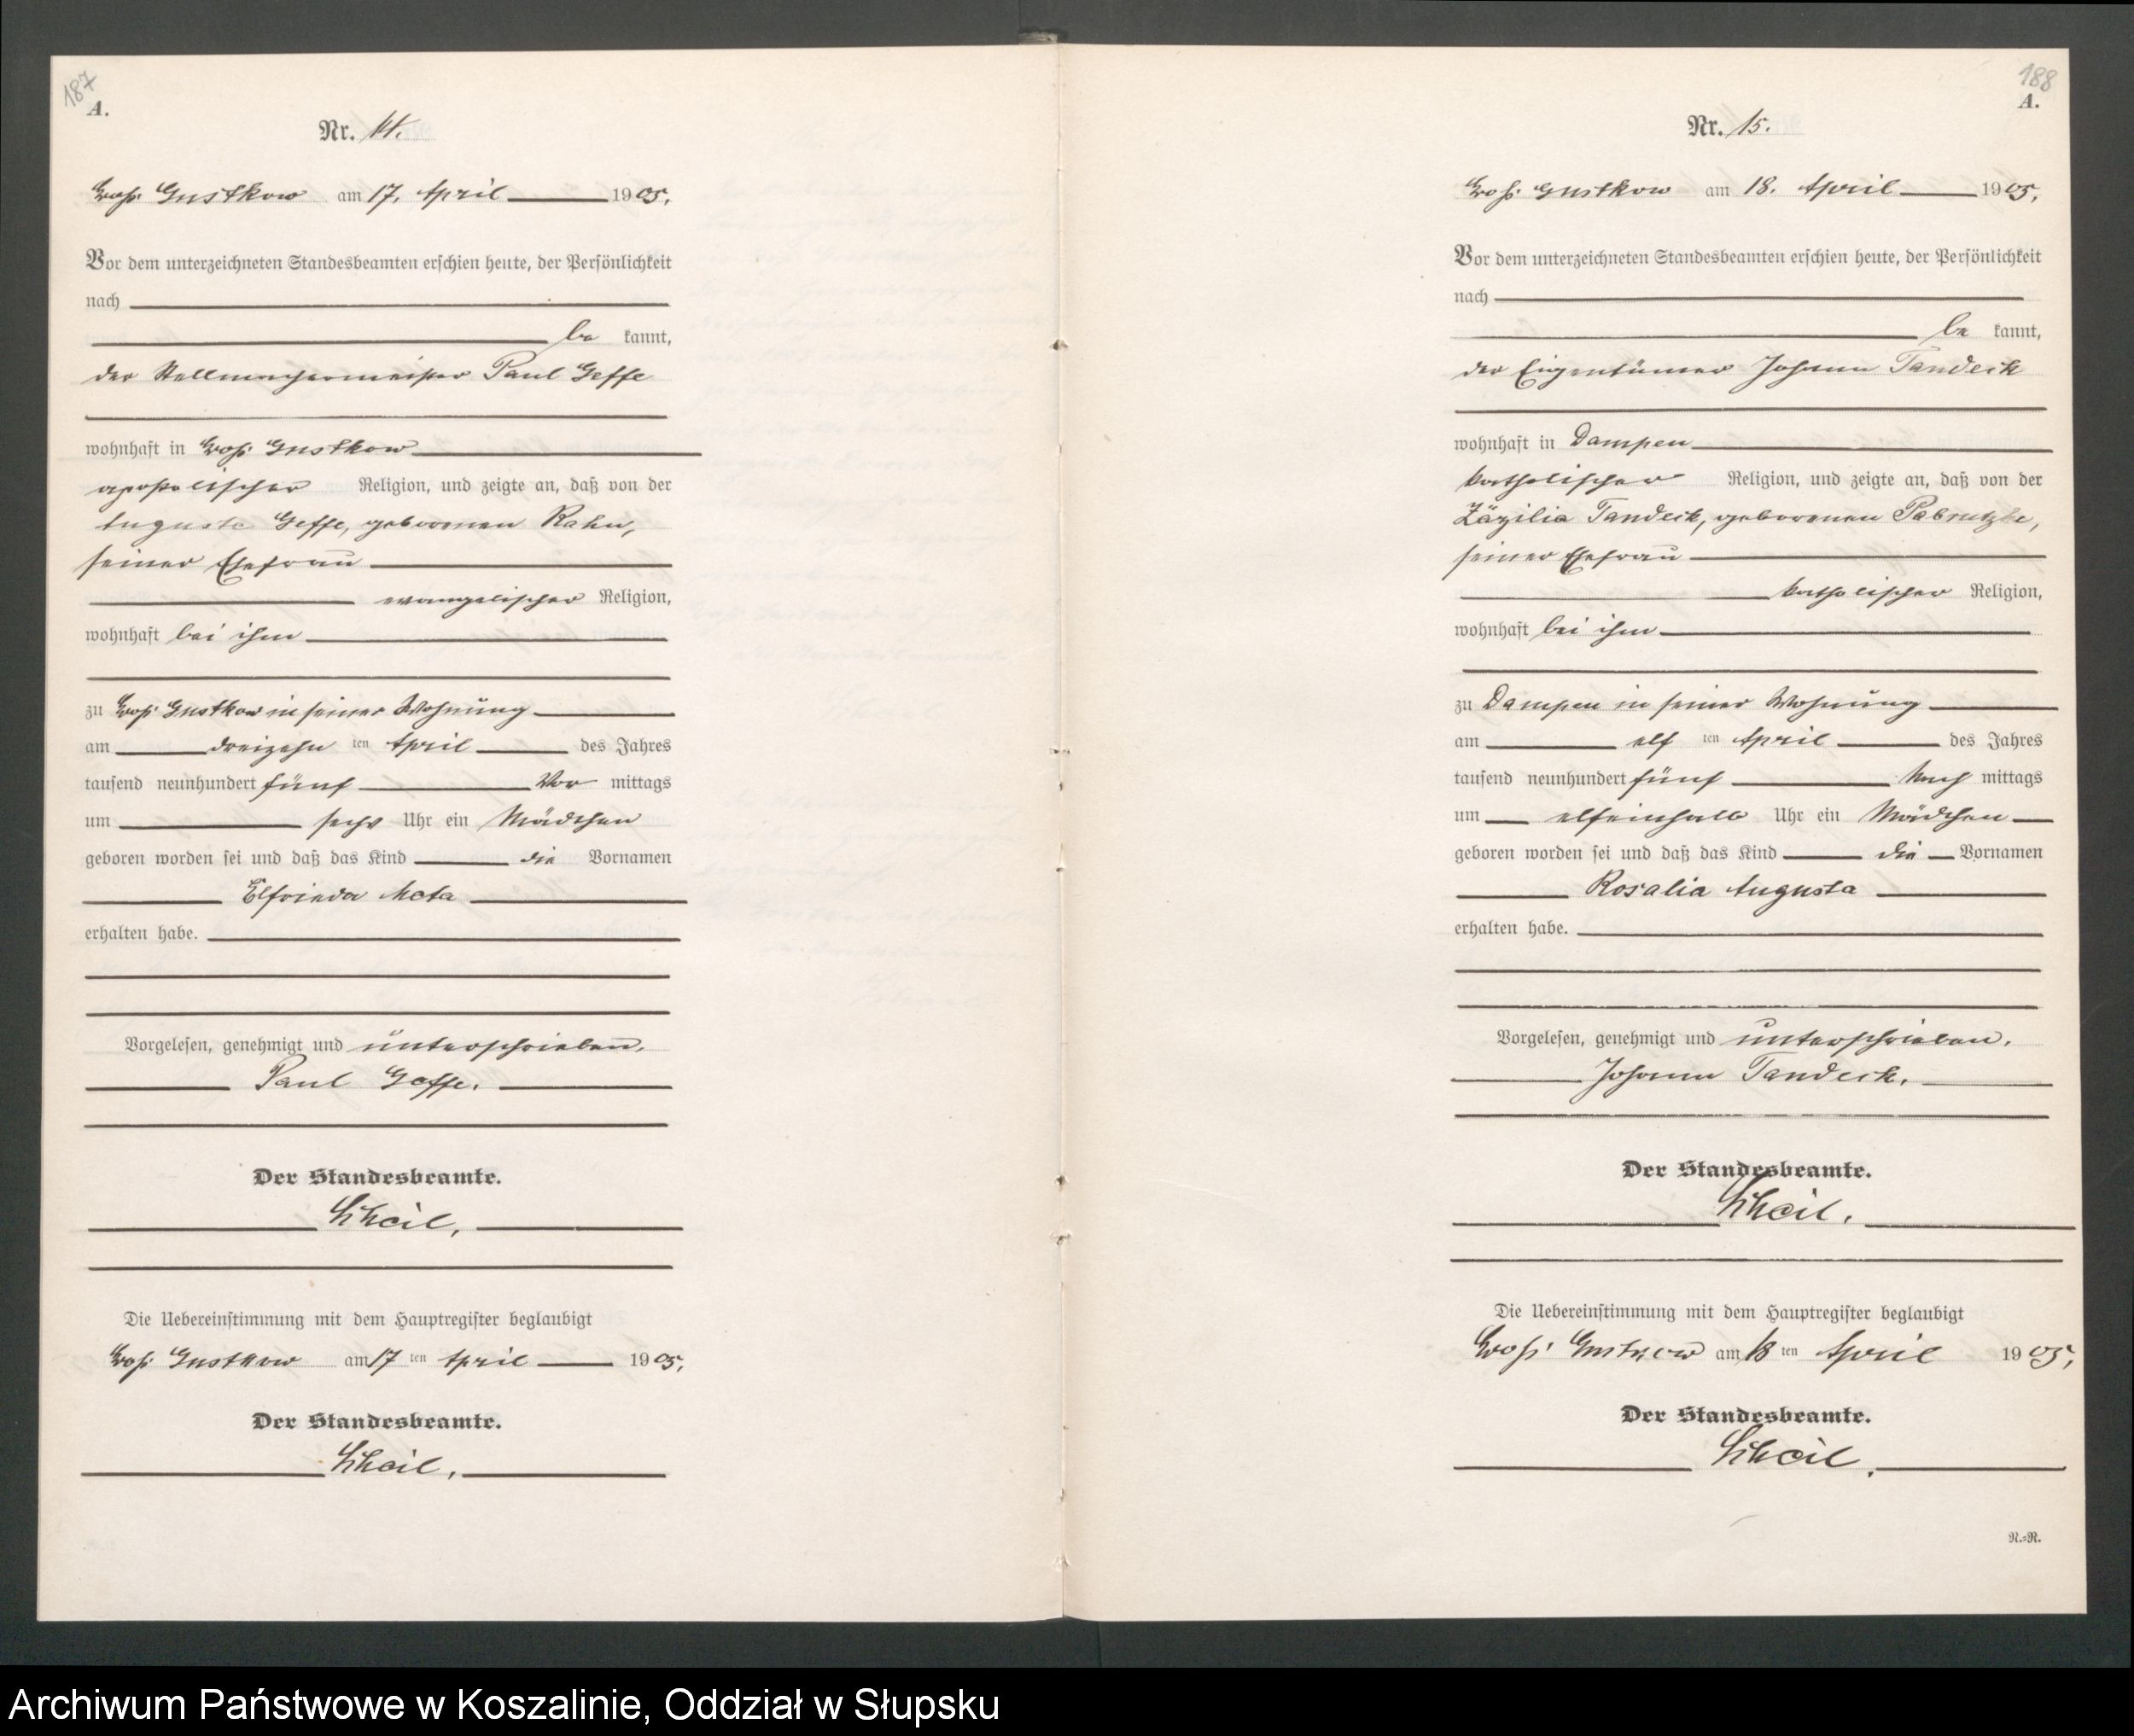 187
A.
Nr. 14.
Groß Gustkow am 17. April 1905.
Vor dem unterzeichneten Standesbeamten erschien heute, der Persönlichkeit
nach
be kannt,
der Stellmachermeister Paul Geffe
wohnhaft in Groß Gustkow
apostolischer Religion, und zeigte an, daß von der
Auguste Geffe, geborenen Rahn,
seiner Ehefrau
evangelischer Religion,
wohnhaft bei ihm
zu Groß Gustkow in seiner Wohnung
am dreizehn ten April des Jahres
tausend neunhundert fünf Vor mittags
um sechs Uhr ein Mädchen
geboren worden sei und daß das Kind die Vornamen
Elfrieda Meta
erhalten habe.
Vorgelesen, genehmigt und unterschrieben.
Paul Geffe.
Der Standesbeamte.
Der Standesbeamte.
Die Uebereinstimmung mit dem Hauptregister beglaubigt
Groß Gustkow am 17 ten April 1905.
Der Standesbeamte.
188
A.
Nr. 15.
Groß Gustkow am 18. April 1905.
Vor dem unterzeichneten Standesbeamten erschien heute, der Persönlichkeit
nach
be kannt,
der Eigentümer Johann Tandeck
wohnhaft in Dampen
katholischer Religion, und zeigte an, daß von der
Zäzilia Tandeck, geborenen
seiner Ehefrau
katholischer Religion,
wohnhaft bei ihm
zu Dampen in seiner Wohnung
am elf ten April des Jahres
tausend neunhundert fünf Nach mittags
um elfeinhalb Uhr ein Mädchen
geboren worden sei und daß das Kind die Vornamen
Rosalia Augusta
erhalten habe.
Vorgelesen, genehmigt und unterschrieben.
Johann Tandeck.
Der Standesbeamte.
Die Uebereinstimmung mit dem Hauptregister beglaubigt
Groß Gustkow am 18 ten April 1905.
Der Standesbeamte.
N.=R.
Archiwum Państwowe w Koszalinie, Oddział w Słupsku